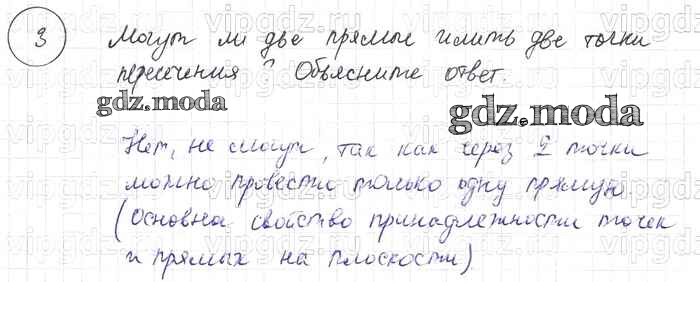 3
Могут ли две прямые иметь две точки
пересечения? Объясните ответ.
gdz.moda
gdz.moda
Нет, не смогут, так как через 2 точки
можно провести только одну прямую.
(Основна свойство принадлежности точек
и прямых на плоскости)